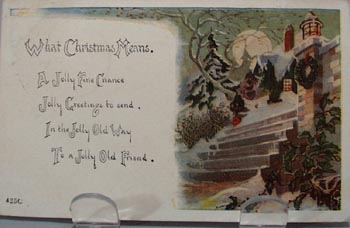 What Christmas Means.
A Jolly Fine Chance
Jolly Greetings to send.
In the Jolly Old Way
To a Jolly Old Friend.